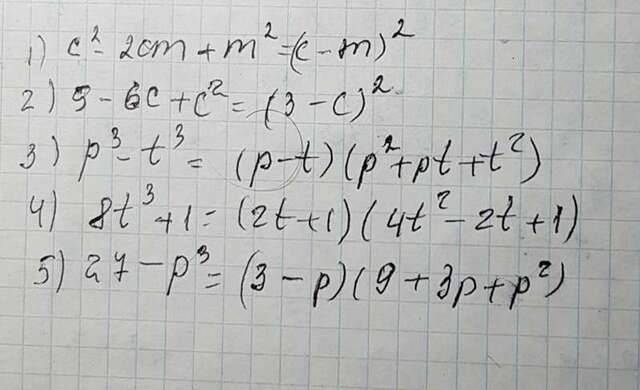 1) c² - 2cm + m² = (c - m)²
2) 9 - 6c + c² = (3 - c)²
3) p³ - t³ = (p - t)(p² + pt + t²)
4) 8t³ + 1 = (2t + 1)(4t² - 2t + 1)
5) 27 - p³ = (3 - p)(9 + 3p + p²)